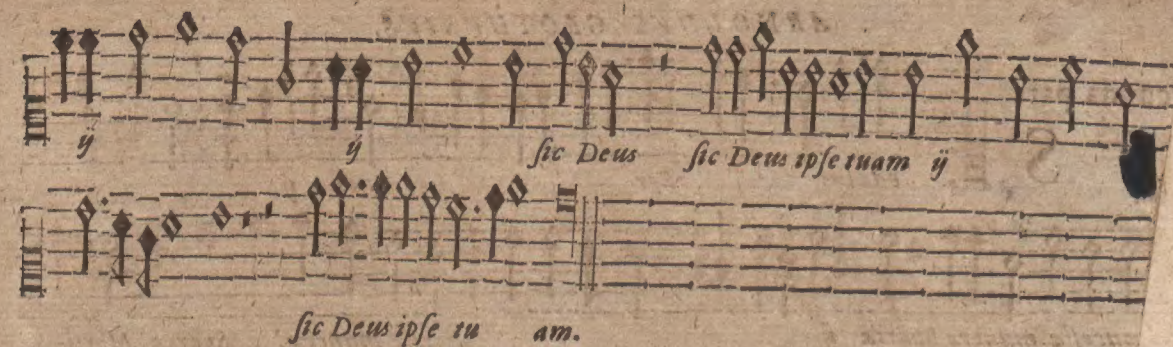 ij ij ſic Deus ſic Deus ipſe tuam ij
ſic Deus ipſe tu am.